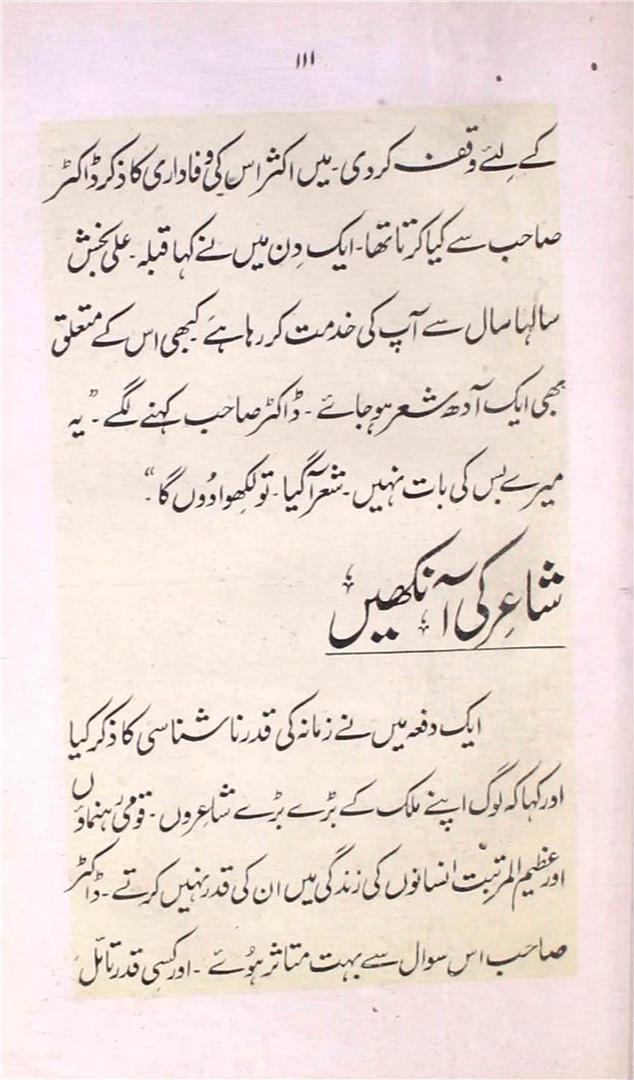 ۱۱۱
کے لئے وقف کر دی۔ میں اکثر اس کی وفاداری کا ذکر ڈاکٹر
صاحب سے کیا کرتا تھا۔ ایک دِن میں نے کہا قبلہ۔ علی بخش
سالہا سال سے آپ کی خدمت کر رہا ہے کبھی اس کے متعلق
بھی ایک آدھ شعر ہو جائے۔ ڈاکٹر صاحب کہنے لگے۔ "یہ
میرے بس کی بات نہیں۔ شعر آگیا۔ تو لکھوا دُوں گا۔"
شاعِر کی آنکھیں
ایک دفعہ میں نے زمانہ کی قدر ناشناسی کا ذکر کیا
اور کہا کہ لوگ اپنے ملک کے بڑے بڑے شاعِروں۔ قومی رہنماؤں
اور عظیم المرتبت انسانوں کی زندگی میں ان کی قدر نہیں کرتے۔ ڈاکٹر
صاحب اس سوال سے بہت متاثر ہُوئے۔ اور کسِی قدر تامّل